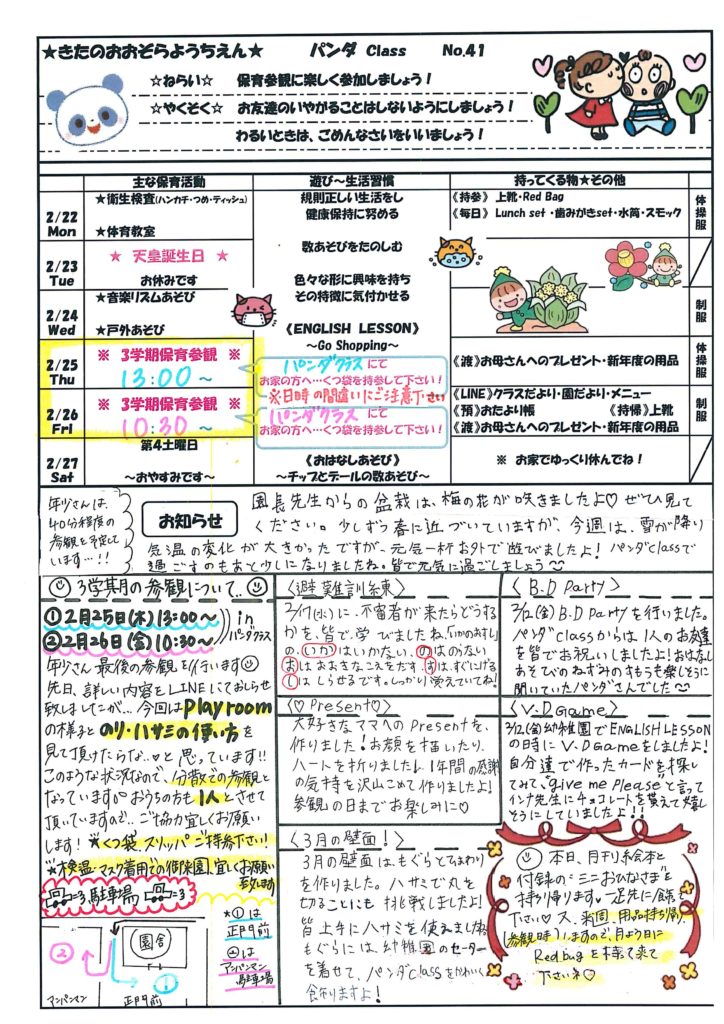 ★きたのおおぞらようちえん★　パンダ Class　No.41
☆ねらい☆　保育参観に楽しく参加しましょう！
☆やくそく☆　お友達のいやがることはしないようにしましょう！
わるいときは、ごめんなさいをいいましょう！
主な保育活動　遊び～生活習慣　持ってくる物★その他
2/22 Mon
★衛生検査(ハンカチ・つめ・ティッシュ)
★体育教室
規則正しい生活をし
健康保持に努める
《持参》上靴・Red Bag
《毎日》Lunch set・歯みがきset・水筒・スモック
体操服
2/23 Tue
★ 天皇誕生日 ★
お休みです
数あそびをたのしむ
色々な形に興味を持ち
その特徴に気付かせる
2/24 Wed
★音楽リズムあそび
★戸外あそび
《ENGLISH LESSON》
～Go Shopping～
制服
2/25 Thu
※ 3学期保育参観 ※
13:00～
パンダクラスにて
お家の方へ…くつ袋を持参して下さい！
※日時の間違いにご注意下さい
《渡》お母さんへのプレゼント・新年度の用品
体操服
2/26 Fri
※ 3学期保育参観 ※
10:30～
パンダクラスにて
お家の方へ…くつ袋を持参して下さい！
《LINE》クラスだより・園だより・メニュー
《預》おたより帳　《持帰》上靴
《渡》お母さんへのプレゼント・新年度の用品
制服
2/27 Sat
第4土曜日
～おやすみです～
《おはなしあそび》
～チップとデールの数あそび～
※ お家でゆっくり休んでね！
年少さんは、
40分程度の
参観を予定して
います…!!
お知らせ
園長先生からの盆栽は、梅の花が咲きましたよ♡ ぜひ見て
ください。少しずつ春に近づいていますが、今週は、雪が降り
気温の変化が大きかったですが、元気一杯お外で遊びましたよ！パンダclassで
過ごすのもあと少しになりましたね。皆で元気に過ごしましょう
3学期の参観について..
①2月25日(木)13:00～
②2月26日(金)10:30～
in パンダクラス
年少さん最後の参観を行います
先日、詳しい内容をLINEにておしらせ
致しましたが…今回はPlayroom
の様子とのり・ハサミの使い方を
見て頂けたらな..♡と思っています!!
このような状況なので、分散での参観と
なっています。おうちの方も1人とさせて
頂いていますので..ご協力宜しくお願い
します！★くつ袋、スリッパご持参下さい！
★検温・マスク着用での御来園、宜しくお願い
致します
駐車場
②
園舎
①
アンパンマン
正門前
★①は
正門前
②は
アンパンマン
駐車場
〈避難訓練〉
2/17(水)に、不審者が来たらどうする
かを、皆で学びましたね。「いかのおすし」
の、いかはいかない、のはのらない
おはおおきなこえをだす、すはすぐにげる
しはしらせるです。しっかり覚えていてね！
〈♡Present♡〉
大好きなママへのPresentを、
作りました！お顔を描いたり、
ハートを折りましたし、1年間の感謝
の気持を沢山こめて作りましたよ！
参観の日までお楽しみに♡
〈3月の壁面！〉
3月の壁面は、もぐらとひまわり
を作りました。ハサミで丸を
切ることにも挑戦しましたよ！
皆上手にハサミを使えましたね
もぐらには、幼稚園のセーター
を着せて、パンダclassをかわいく
飾りますよ！
〈B.D Party〉
2/12(金)B.D Partyを行いました。
パンダclassからは1人のお友達
を皆でお祝いしましたよ！おはなし
あそびのねずみのすもうも楽しそうに
聞いていたパンダさんでした
〈V.DGame〉
2/12(金)幼稚園でENGLISH LESSON
の時にV.DGameをしましたよ！
自分達で作ったカードを探し
てみて、"give me Please"と言って
インナ先生にチョコレートを貰えて嬉し
そうにしていましたよ!!
本日、月刊絵本と
付録の"ミニおひなさま"を
持ち帰ります。一足先に飾って
下さい♡又、来週、用品持ち帰り
(参観時)しますので、月よう日に
Redbagを持って来て
下さいネ♡